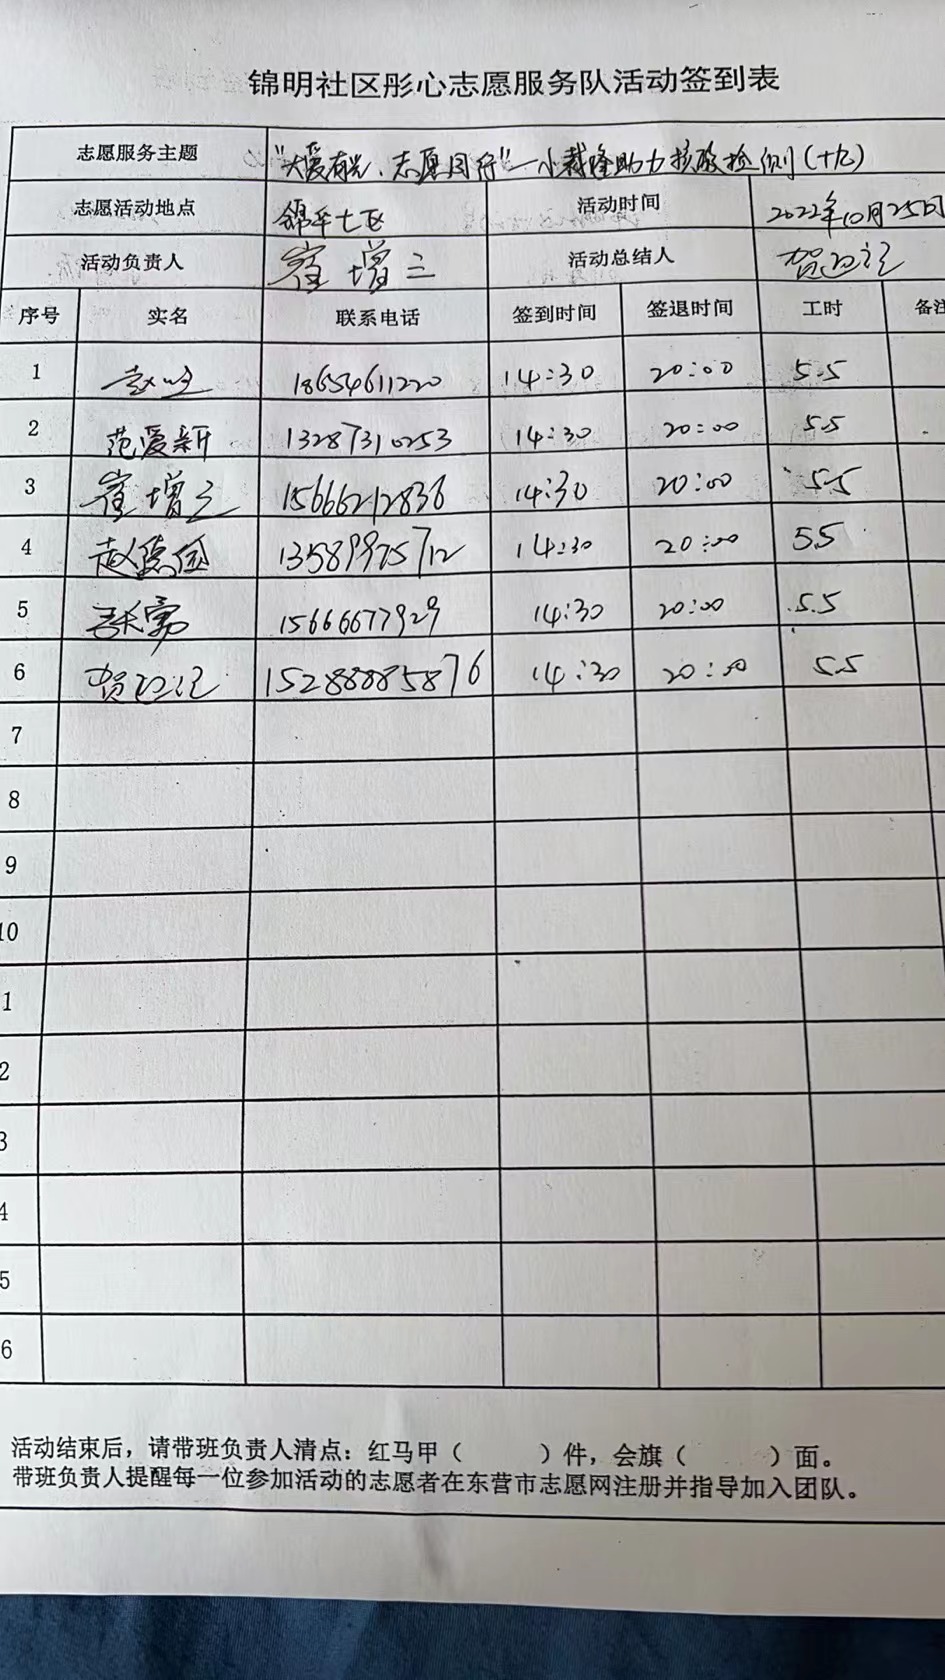 锦明社区彤心志愿服务队活动签到表
志愿服务主题 "大爱有光、志愿同行"一小裁隆助力核酸检测(十九)
志愿活动地点 锦平七区 活动时间 2022年10月25日
活动负责人 崔增三 活动总结人 贺
序号 实名 联系电话 签到时间 签退时间 工时 备注
1 赵 18654611220 14:30 20:00 5.5
2 范爱新 13287310253 14:30 20:00 5.5
3 崔增三 15666212836 14:30 20:00 5.5
4 赵 13589975712 14:30 20:00 5.5
5 15666677929 14:30 20:00 5.5
6 贺 15288885876 14:30 20:00 5.5
7
8
9
10
1
2
3
4
5
6
活动结束后，请带班负责人清点：红马甲（ ）件，会旗（ ）面。
带班负责人提醒每一位参加活动的志愿者在东营市志愿网注册并指导加入团队。